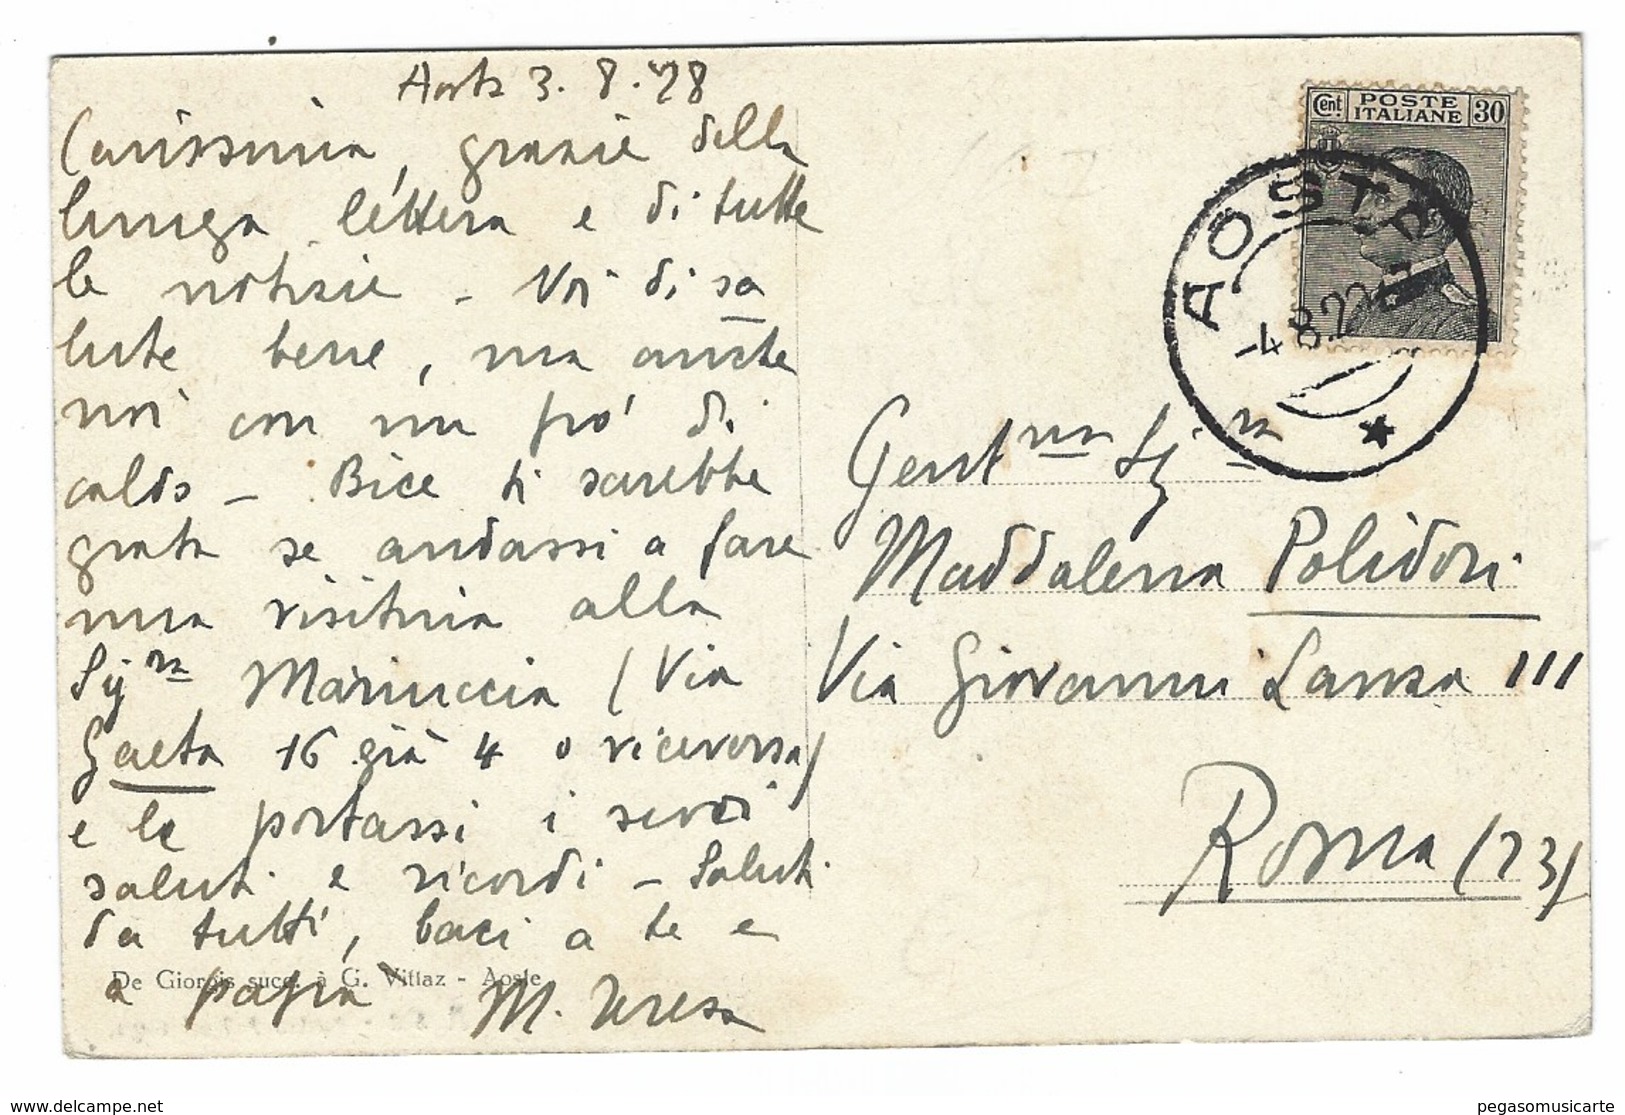 Aosta 3. 8. '28
Carissima, grazie della
lunga lettera e di tutte
le notizie - Voi di sa
lute bene, ma anche
noi con un po' di
caldo - Bice ti sarebbe
grata se andassi a fare
una visitina alla
Sig.ra Mariuccia (Via
Gaeta 16 già 4 o viceversa)
e le portassi i suoi
saluti e ricordi - Saluti
da tutti, baci a te e
a papà M. Teresa
De Giorgis succ. à G. Vittaz - Aoste
Cent. POSTE ITALIANE 30
AOSTA
4 8.22
Gent.ma Sig.ra
Maddalena Polidori
Via Giovanni Lanza 111
Roma (23)
delcampe.net
pegasomusicarte